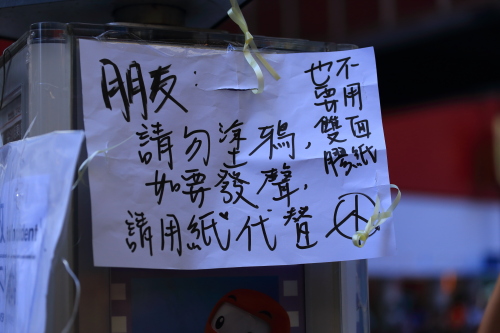 朋友：
請勿塗鴉，
如要發聲，
請用紙代聲
也不
要用
雙面
膠紙